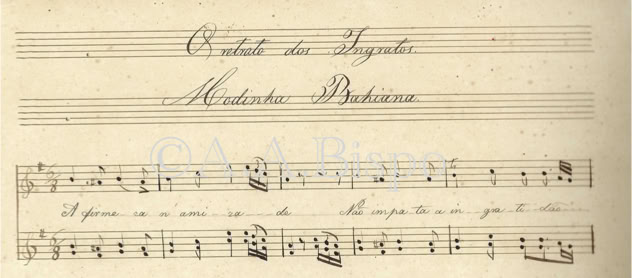 O retrato dos Ingratos.
Modinha Bahiana.
© A. A. Bispo
A firme za n ami za de Não impa ta a in gra ti dão